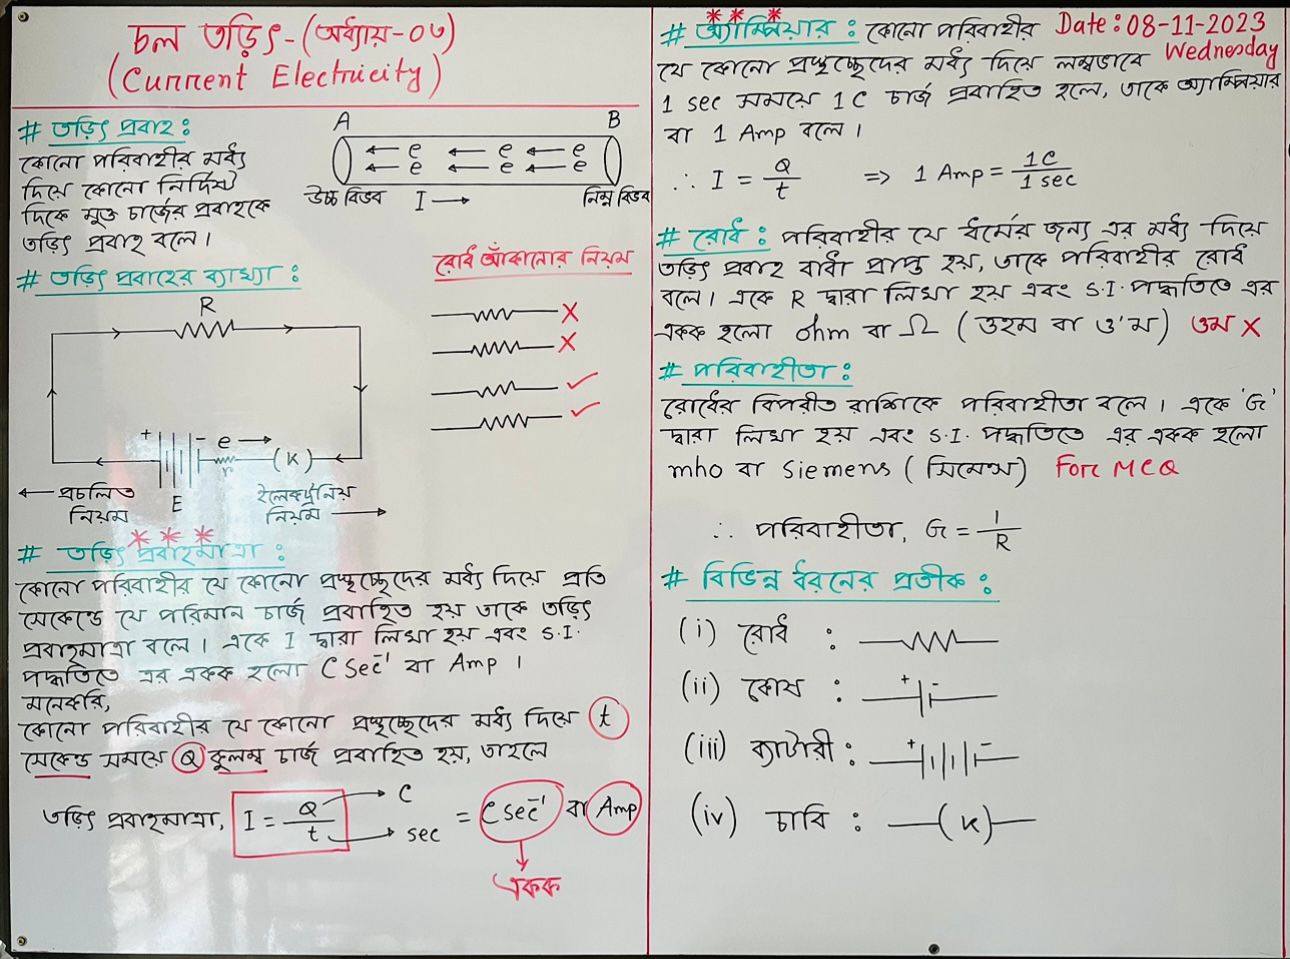 চল তড়িৎ-(অধ্যায়-০৩)
(Current Electricity)
# তড়িৎ প্রবাহ :
কোনো পরিবাহীর মধ্য
দিয়ে কোনো নির্দিষ্ট
দিকে মুক্ত চার্জের প্রবাহকে
তড়িৎ প্রবাহ বলে।
A B
← e ← e ← e
← e ← e ← e
উচ্চ বিভব I → নিম্ন বিভব
# তড়িৎ প্রবাহের ব্যাখ্যা :
R
+ - e →
r (K)
E
← প্রচলিত নিয়ম
ইলেকট্রনিয় নিয়ম →
রোধ আঁকানোর নিয়ম
X
X
✓
✓
*** # তড়িৎ প্রবাহমাত্রা :
কোনো পরিবাহীর যে কোনো প্রস্থচ্ছেদের মধ্য দিয়ে প্রতি
সেকেন্ডে যে পরিমান চার্জ প্রবাহিত হয় তাকে তড়িৎ
প্রবাহমাত্রা বলে। একে I দ্বারা লিখা হয় এবং S.I.
পদ্ধতিতে এর একক হলো C Sec⁻¹ বা Amp ।
মনেকরি,
কোনো পরিবাহীর যে কোনো প্রস্থচ্ছেদের মধ্য দিয়ে t
সেকেন্ড সময়ে Q কুলম্ব চার্জ প্রবাহিত হয়, তাহলে
তড়িৎ প্রবাহমাত্রা, I = Q/t → C → sec = C sec⁻¹ বা Amp
একক
Date: 08-11-2023
Wednesday
*** # অ্যাম্পিয়ার : কোনো পরিবাহীর
যে কোনো প্রস্থচ্ছেদের মধ্য দিয়ে লম্বভাবে
1 sec সময়ে 1C চার্জ প্রবাহিত হলে, তাকে অ্যাম্পিয়ার
বা 1 Amp বলে।
∴ I = Q/t ⇒ 1 Amp = 1C/1 sec
# রোধ : পরিবাহীর যে ধর্মের জন্য এর মধ্য দিয়ে
তড়িৎ প্রবাহ বাধা প্রাপ্ত হয়, তাকে পরিবাহীর রোধ
বলে। একে R দ্বারা লিখা হয় এবং S.I. পদ্ধতিতে এর
একক হলো ohm বা Ω (ওহম বা ও'ম) ওম X
# পরিবাহীতা :
রোধের বিপরীত রাশিকে পরিবাহীতা বলে। একে 'G'
দ্বারা লিখা হয় এবং S.I. পদ্ধতিতে এর একক হলো
mho বা Siemens (সিমেন্স) For MCQ
∴ পরিবাহীতা, G = 1/R
# বিভিন্ন ধরনের প্রতীক :
(i) রোধ :
(ii) কোষ : + -
(iii) ব্যাটারী : + -
(iv) চাবি : (K)